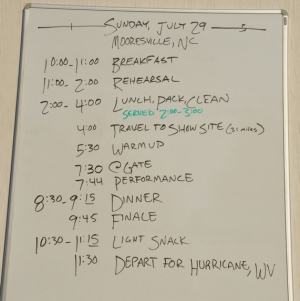 SUNDAY, JULY 29
MOORESVILLE, NC
10:00-11:00 BREAKFAST
11:00-2:00 REHEARSAL
2:00-4:00 LUNCH, PACK, CLEAN
SERVED 2:00-3:00
4:00 TRAVEL TO SHOW SITE (31 MILES)
5:30 WARM UP
7:30 @ GATE
7:44 PERFORMANCE
8:30-9:15 DINNER
9:45 FINALE
10:30-11:15 LIGHT SNACK
11:30 DEPART FOR HURRICANE, WV